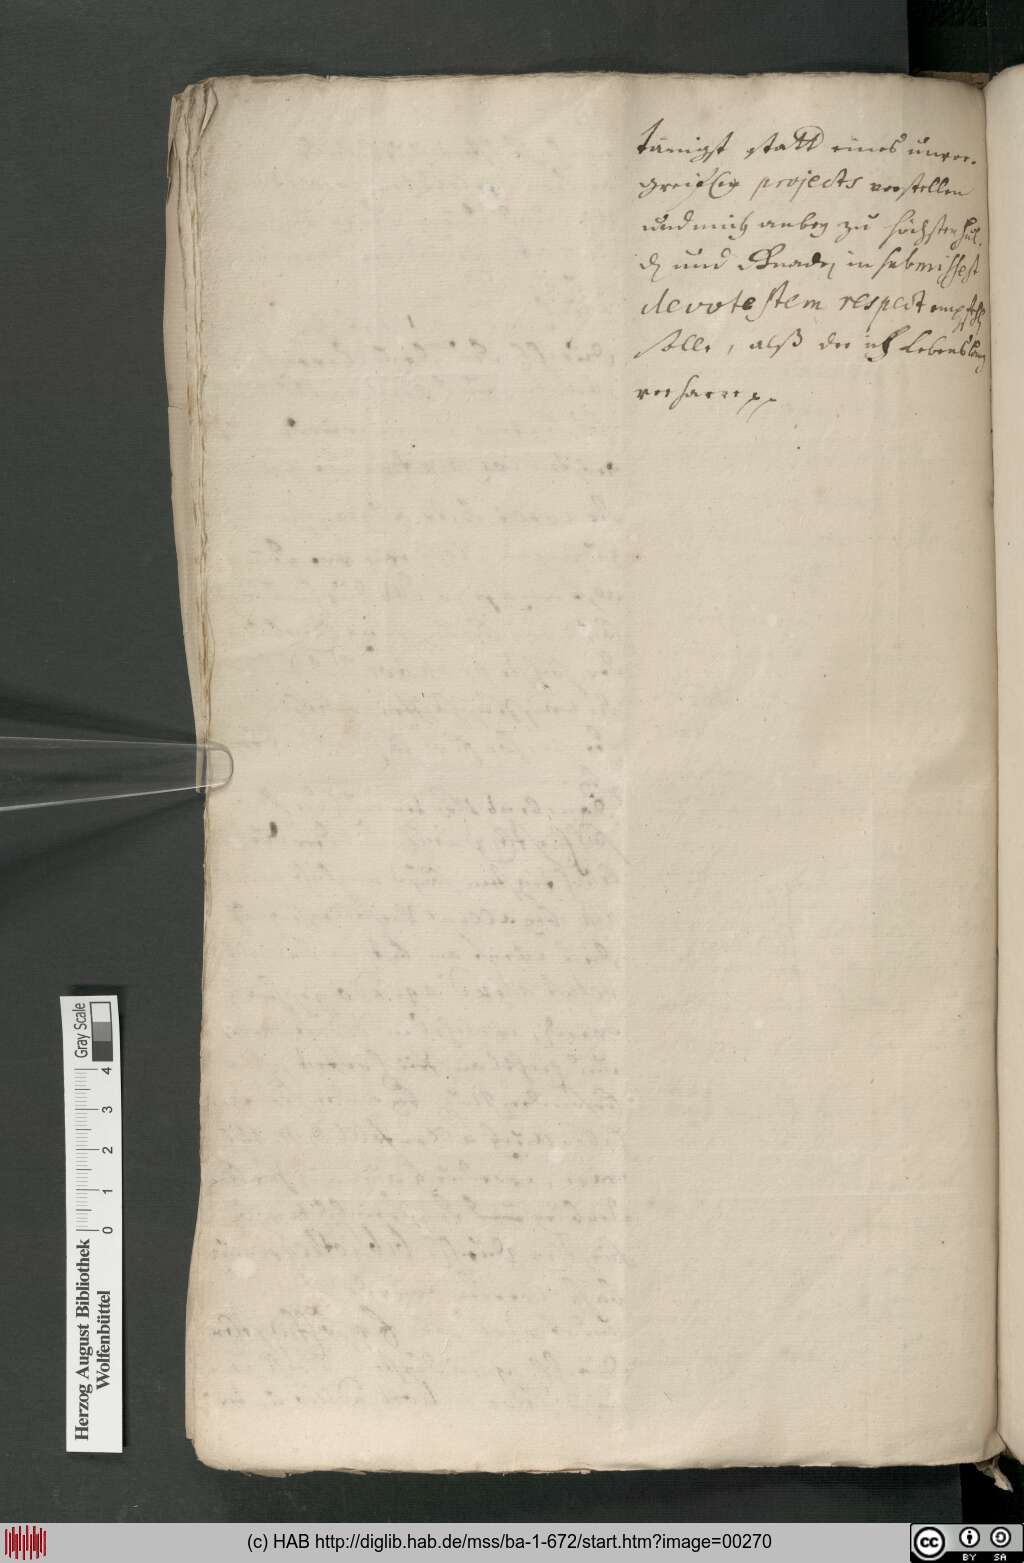 tänigst statt eines unvor-
greifflig projects vorstellen
und mich anbey zu höchster Hul-
d und Gnade in submissest
devotestem respect empfehl
solle, alß der ich Lebenslang
verharre pp
Gray Scale
0 1 2 3 4
Herzog August Bibliothek
Wolfenbüttel
(c) HAB http://diglib.hab.de/mss/ba-1-672/start.htm?image=00270
cc BY SA